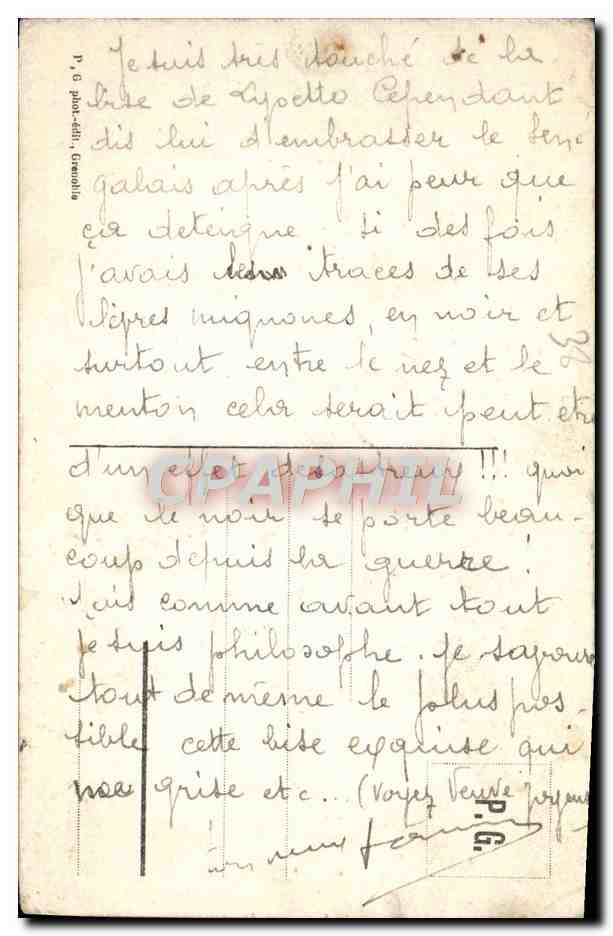 Je suis très touché de la
bise de Lysette Cependant
dis lui d'embrasser le Séné
galais après j'ai peur que
ça deteigne. si des fois
j'avais les traces de ses
lèpres mignones, en noir et
surtout entre le nez et le
menton cela serait peut etre
d'un effet desastreux !!! quoi
que le noir se porte beau-
coup depuis la guerre !
Mais comme avant tout
je suis philosophe. Je savoure
tout de même le plus pos-
sible cette bise exquise qui
me grise etc... (Voyez Veuve
38
P, G phot.-édit., Grenoble
P. G.
CPAPHIL